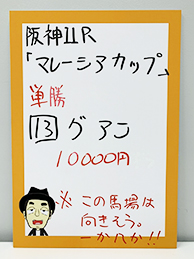 阪神11R
「マレーシアカップ」
単勝
13 グアン
10000円
※ この馬場は
向きそう。
一か八か!!